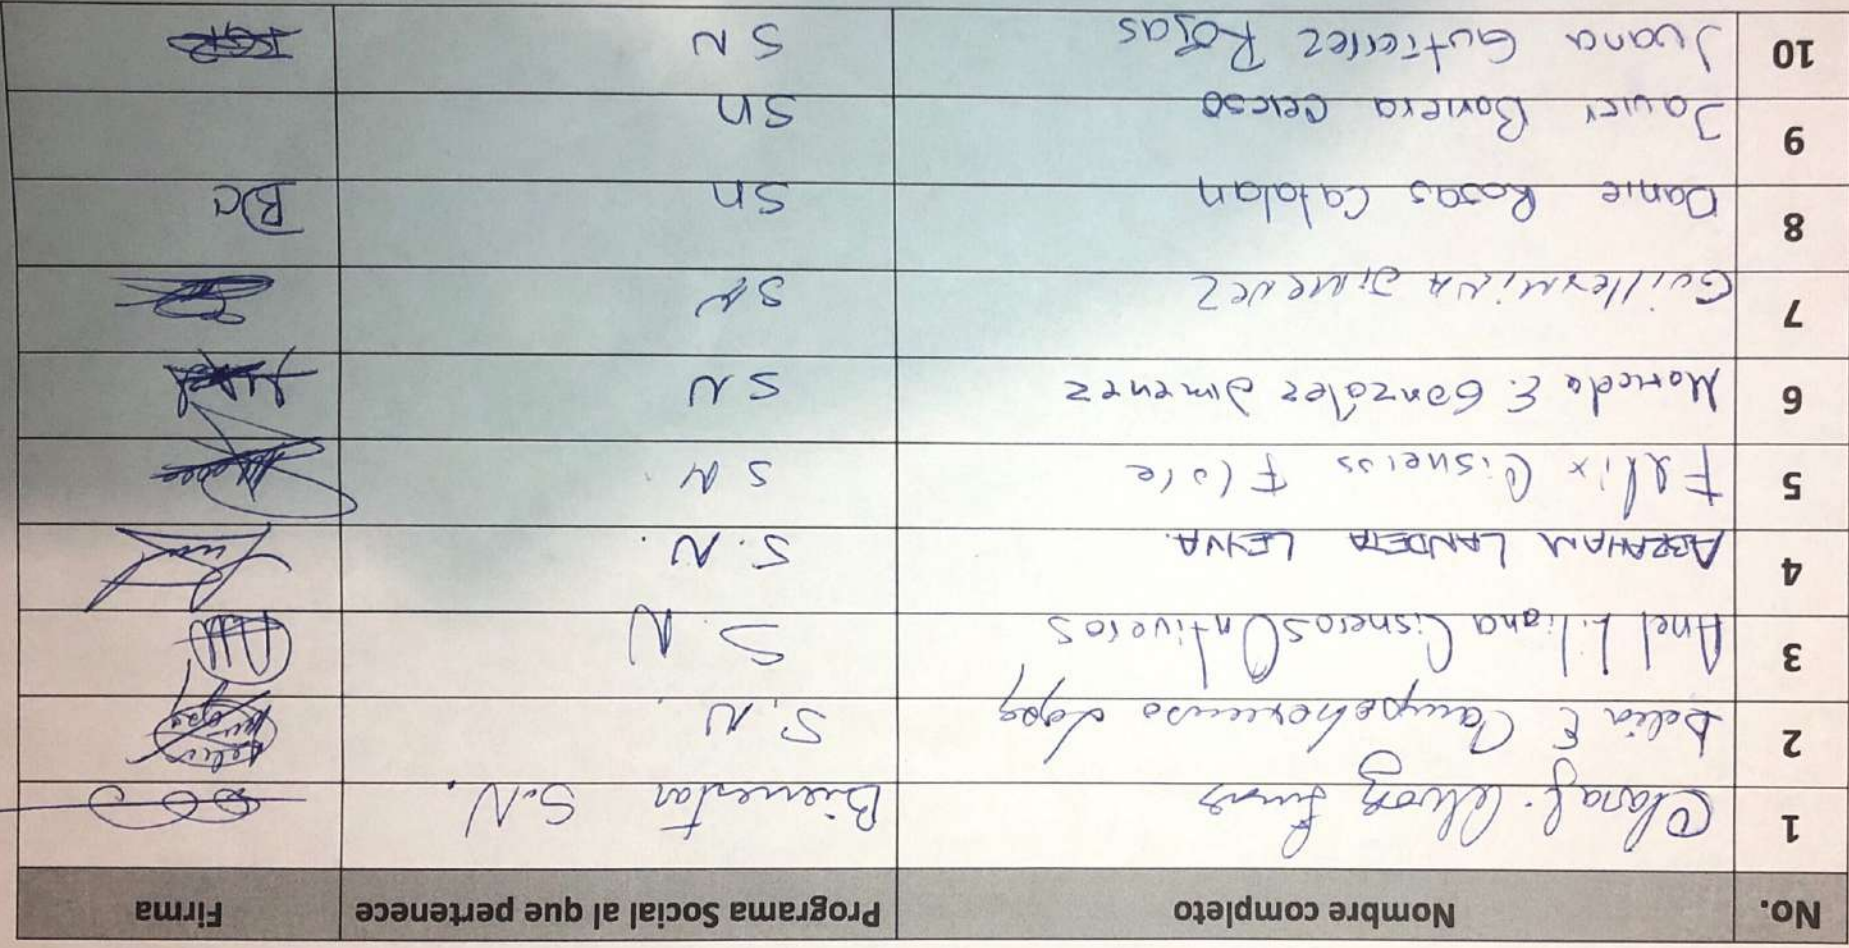 No. Nombre completo Programa Social al que pertenece Firma
1 Clara J. Bienestar S.N.
2 Delia E. Campoherმoso Lopez S.N.
3 Anel Liliana Cisneros Ontiveros S.N
4 ABRAHAM LANDETA LEYVA. S.N.
5 Felix Cisneros Flore S N.
6 Maricela E. González Jimenez S N
7 Guillermina Jimenez S N
8 Danie Rosas Catalan Sn BC
9 Javier Sn
10 Juana Gutierrez Rojas S N JGR